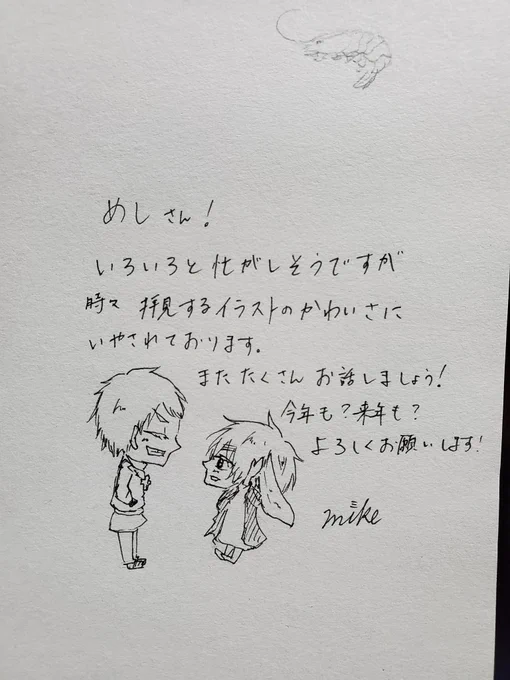 めしさん！
いろいろと忙がしそうですが
時々 拝見するイラストのかわいさに
いやされております。
またたくさんお話しましょう！
今年も？来年も？
よろしくお願いします！
mike